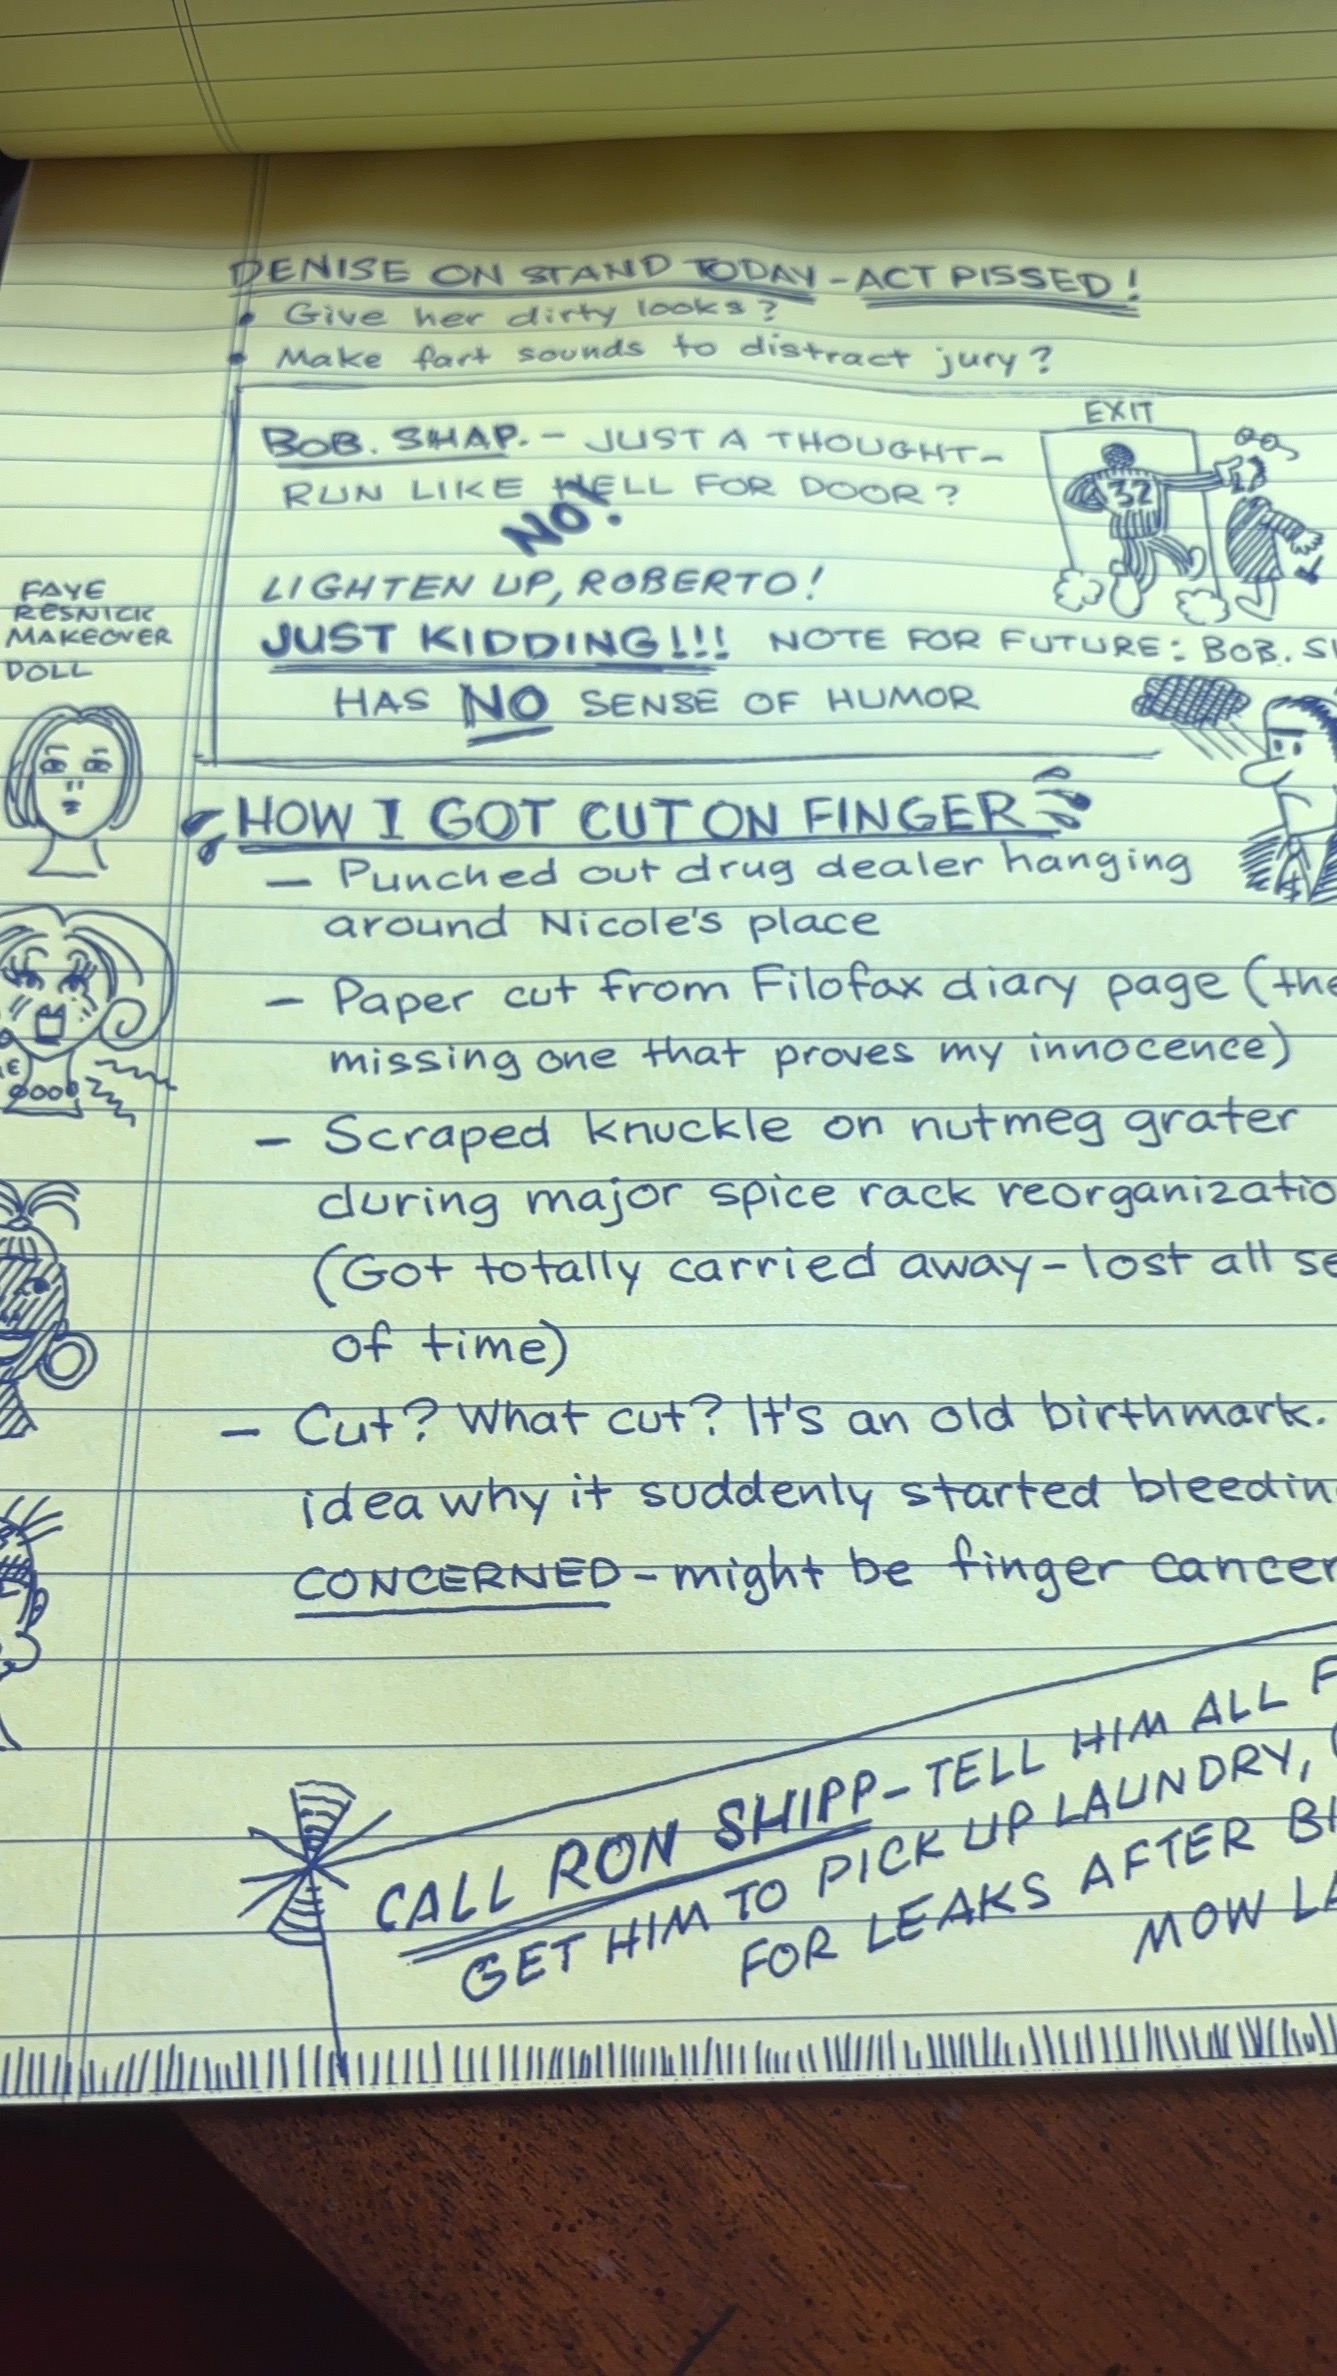 DENISE ON STAND TODAY - ACT PISSED!
• Give her dirty looks?
• Make fart sounds to distract jury?
EXIT
32
BOB. SHAP. - JUST A THOUGHT -
RUN LIKE HELL FOR DOOR?
NO!
LIGHTEN UP, ROBERTO!
JUST KIDDING!!! NOTE FOR FUTURE: BOB.
HAS NO SENSE OF HUMOR
FAYE
RESNICK
MAKEOVER
DOLL
HOW I GOT CUT ON FINGER
— Punched out drug dealer hanging
around Nicole's place
— Paper cut from Filofax diary page (the
missing one that proves my innocence)
— Scraped knuckle on nutmeg grater
during major spice rack reorganizatio
(Got totally carried away - lost all se
of time)
— Cut? What cut? It's an old birthmark.
idea why it suddenly started bleedin
CONCERNED - might be finger cancer
CALL RON SHIPP - TELL HIM ALL F
GET HIM TO PICK UP LAUNDRY,
FOR LEAKS AFTER
MOW LA